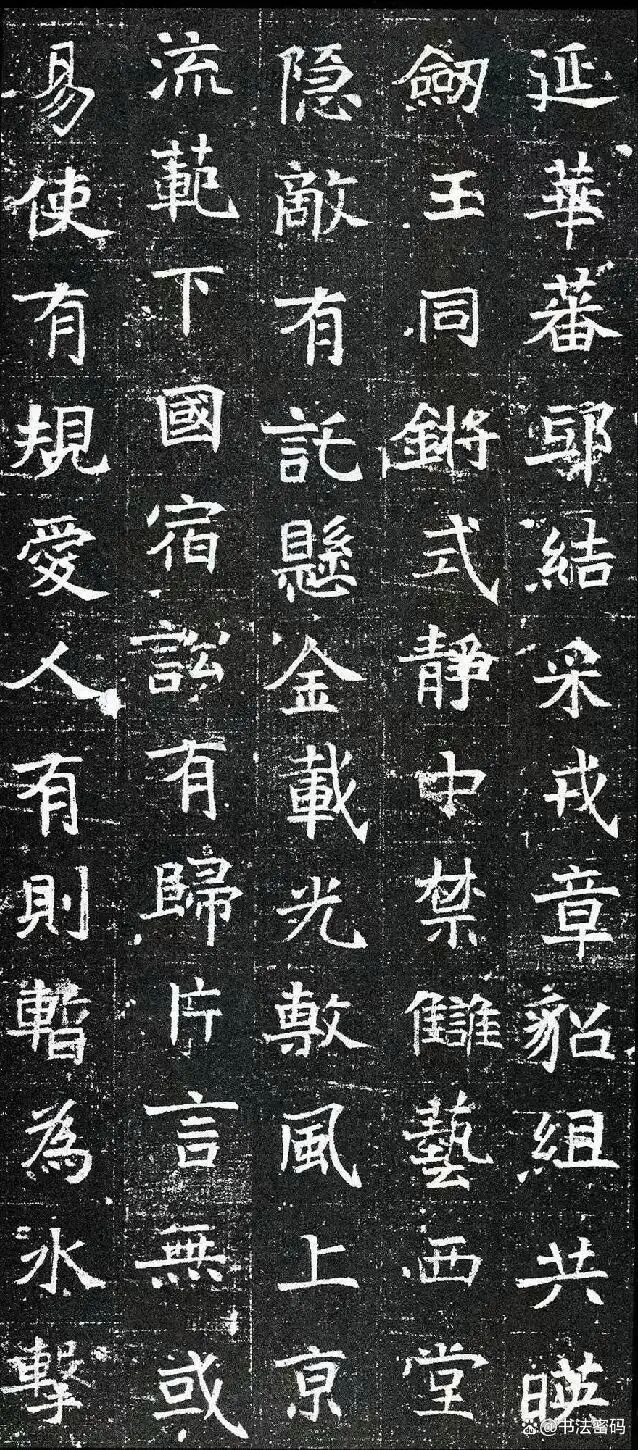 延華蕃邸結采戎章貂組共暎
劒王同鏘式靜中禁讎藝西堂
隐敵有託懸金載光敷風上亰
流範下國宿訟有歸片言無或
易使有規愛人有則暫為氷擊
@书法密码